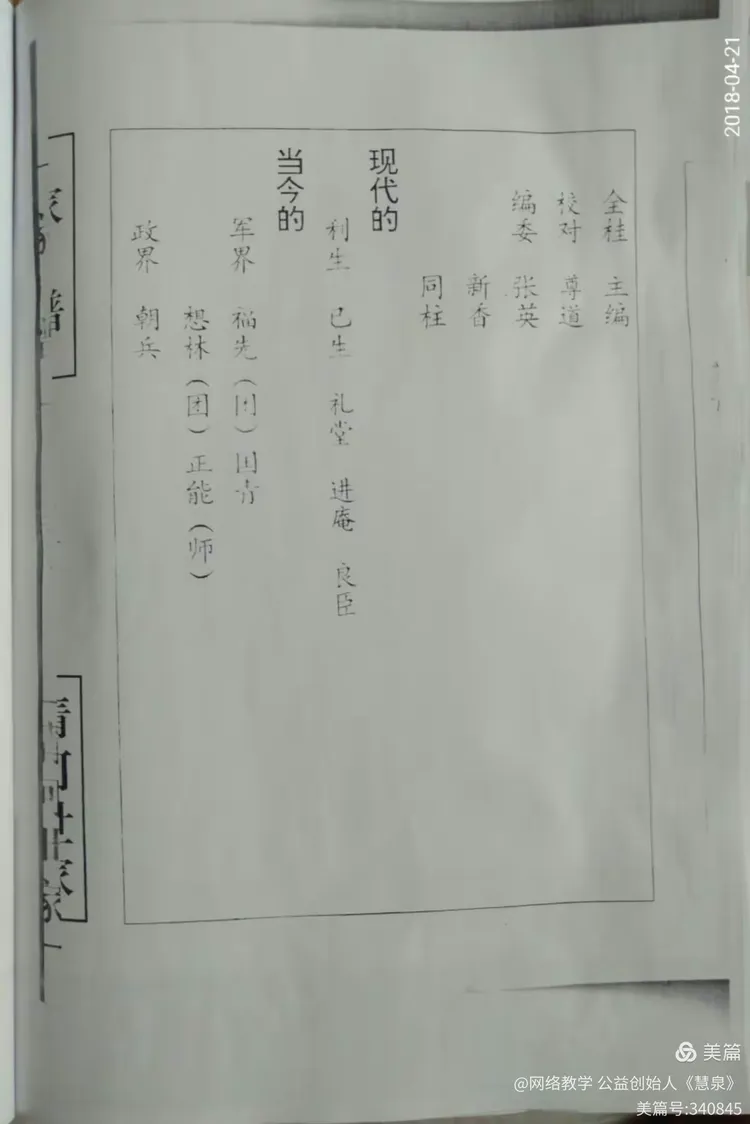 全桂 主编
校对 尊道
编委 张英
新香
同柱
现代的
利生 已生 礼堂 进庵 良臣
当今的
军界 福先（团）国青
想林（团）正能（师）
政界 朝兵
家 谱
2018-04-21
美篇
@网络教学 公益创始人《慧泉》
美篇号:340845